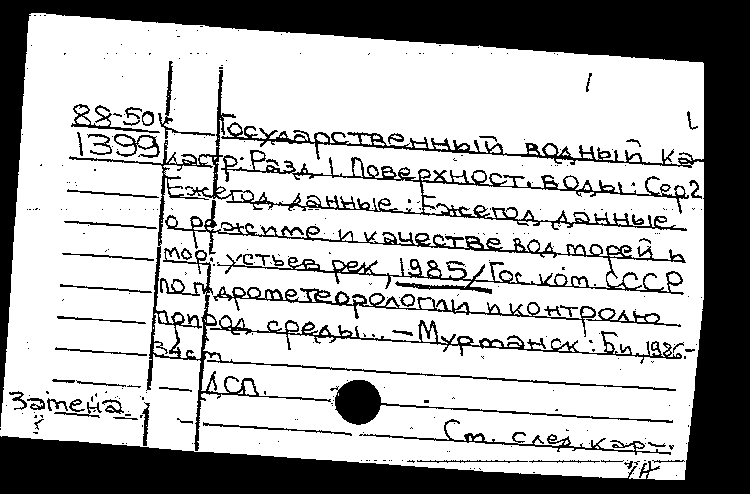 1
88-50к Государственный водный ка-
1399 дастр: Разд 1. Поверхност. воды: Сер2
Ежегод. данные: Ежегод. данные
о режиме и качестве вод морей и
мор. устьев рек, 1985/Гос. ком. СССР
по гидрометеорологии и контролю
природ. среды... – Мурманск: Б.и., 1986.-
34см.
ДСП.
Замена
См. след. карт.